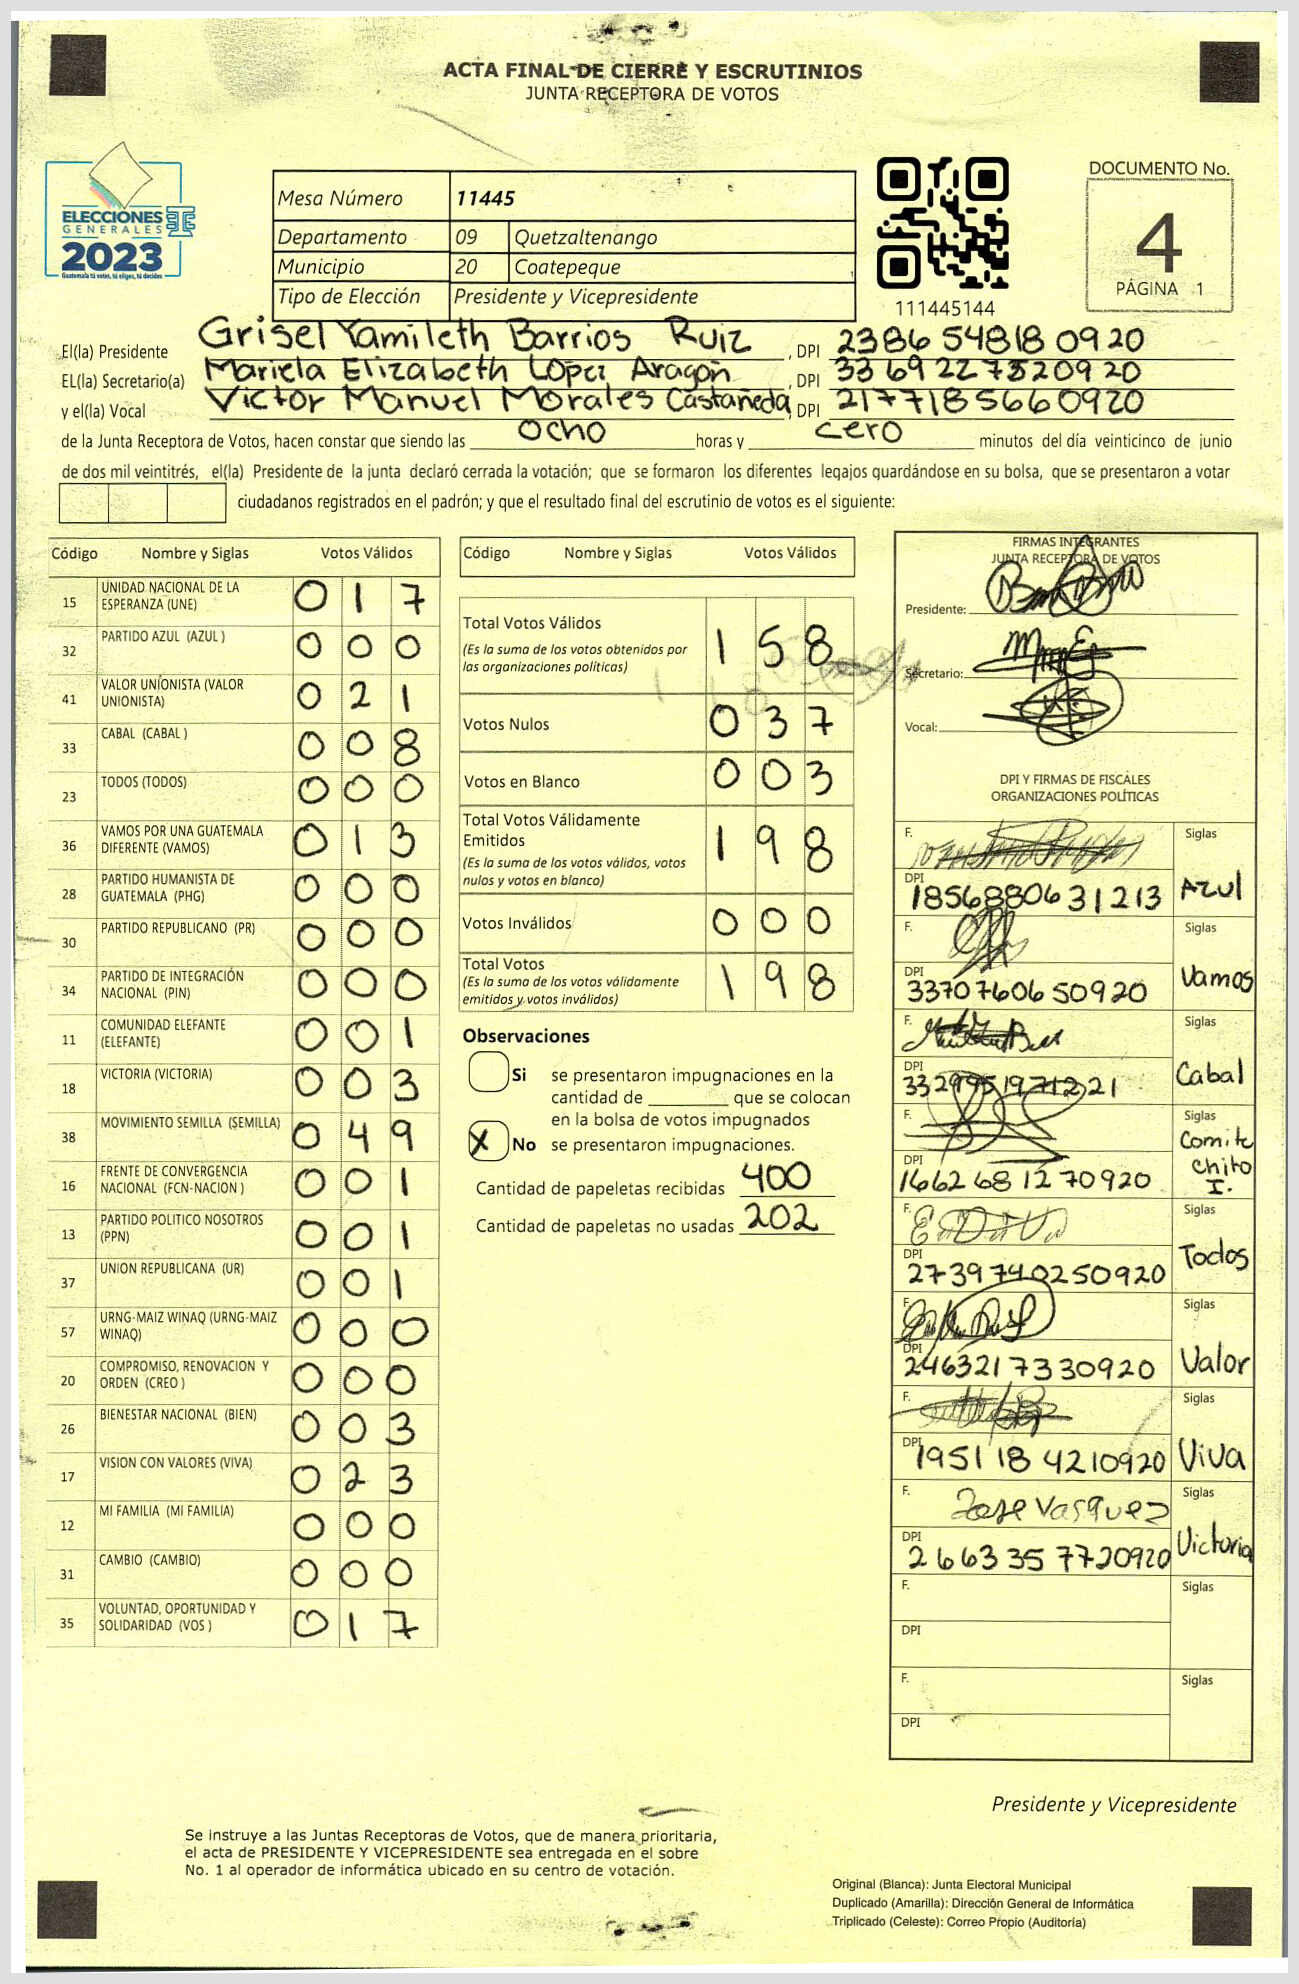 ACTA FINAL DE CIERRE Y ESCRUTINIOS
JUNTA RECEPTORA DE VOTOS
ELECCIONES
GENERALES
2023
Guatemala tú votas, tú eliges, tú decides
Mesa Número 11445
Departamento 09 Quetzaltenango
Municipio 20 Coatepeque
Tipo de Elección Presidente y Vicepresidente
111445144
DOCUMENTO No.
4
PÁGINA 1
El(la) Presidente Grisel Yamileth Barrios Ruiz, DPI 2386 54818 0920
EL(la) Secretario(a) Mariela Elizabeth López Aragón, DPI 3369227520920
y el(la) Vocal Victor Manuel Morales Castañeda, DPI 2177185660920
de la Junta Receptora de Votos, hacen constar que siendo las ocho horas y cero minutos del día veinticinco de junio
de dos mil veintitrés, el(la) Presidente de la junta declaró cerrada la votación; que se formaron los diferentes legajos guardándose en su bolsa, que se presentaron a votar
ciudadanos registrados en el padrón; y que el resultado final del escrutinio de votos es el siguiente:
Código Nombre y Siglas Votos Válidos
15 UNIDAD NACIONAL DE LA ESPERANZA (UNE) 0 1 7
32 PARTIDO AZUL (AZUL ) 0 0 0
41 VALOR UNIONISTA (VALOR UNIONISTA) 0 2 1
33 CABAL (CABAL ) 0 0 8
23 TODOS (TODOS) 0 0 0
36 VAMOS POR UNA GUATEMALA DIFERENTE (VAMOS) 0 1 3
28 PARTIDO HUMANISTA DE GUATEMALA (PHG) 0 0 0
30 PARTIDO REPUBLICANO (PR) 0 0 0
34 PARTIDO DE INTEGRACIÓN NACIONAL (PIN) 0 0 0
11 COMUNIDAD ELEFANTE (ELEFANTE) 0 0 1
18 VICTORIA (VICTORIA) 0 0 3
38 MOVIMIENTO SEMILLA (SEMILLA) 0 4 9
16 FRENTE DE CONVERGENCIA NACIONAL (FCN-NACION ) 0 0 1
13 PARTIDO POLITICO NOSOTROS (PPN) 0 0 1
37 UNION REPUBLICANA (UR) 0 0 1
57 URNG-MAIZ WINAQ (URNG-MAIZ WINAQ) 0 0 0
20 COMPROMISO, RENOVACION Y ORDEN (CREO ) 0 0 0
26 BIENESTAR NACIONAL (BIEN) 0 0 3
17 VISION CON VALORES (VIVA) 0 2 3
12 MI FAMILIA (MI FAMILIA) 0 0 0
31 CAMBIO (CAMBIO) 0 0 0
35 VOLUNTAD, OPORTUNIDAD Y SOLIDARIDAD (VOS ) 0 1 7
Código Nombre y Siglas Votos Válidos
Total Votos Válidos 1 5 8
(Es la suma de los votos obtenidos por
las organizaciones políticas)
Votos Nulos 0 3 7
Votos en Blanco 0 0 3
Total Votos Válidamente
Emitidos 1 9 8
(Es la suma de los votos válidos, votos
nulos y votos en blanco)
Votos Inválidos 0 0 0
Total Votos 1 9 8
(Es la suma de los votos válidamente
emitidos y votos inválidos)
Observaciones
Si se presentaron impugnaciones en la
cantidad de ________ que se colocan
en la bolsa de votos impugnados
X No se presentaron impugnaciones.
Cantidad de papeletas recibidas 400
Cantidad de papeletas no usadas 202
FIRMAS INTEGRANTES
JUNTA RECEPTORA DE VOTOS
Presidente:
Secretario:
Vocal:
DPI Y FIRMAS DE FISCALES
ORGANIZACIONES POLÍTICAS
F. Siglas
DPI 1856880631213 Azul
F. Siglas
DPI 3370760650920 Vamos
F. Siglas
DPI 3329951971221 Cabal
F. Siglas
DPI 1662681270920 Comite Chito I.
F. Siglas
DPI 2739740250920 Todos
F. Siglas
DPI 2463217330920 Valor
F. Siglas
DPI 1951184210920 Viva
F. Jose Vasquez Siglas
DPI 2663357720920 Victoria
F. Siglas
DPI
F. Siglas
DPI
Presidente y Vicepresidente
Se instruye a las Juntas Receptoras de Votos, que de manera prioritaria,
el acta de PRESIDENTE Y VICEPRESIDENTE sea entregada en el sobre
No. 1 al operador de informática ubicado en su centro de votación.
Original (Blanca): Junta Electoral Municipal
Duplicado (Amarilla): Dirección General de Informática
Triplicado (Celeste): Correo Propio (Auditoría)